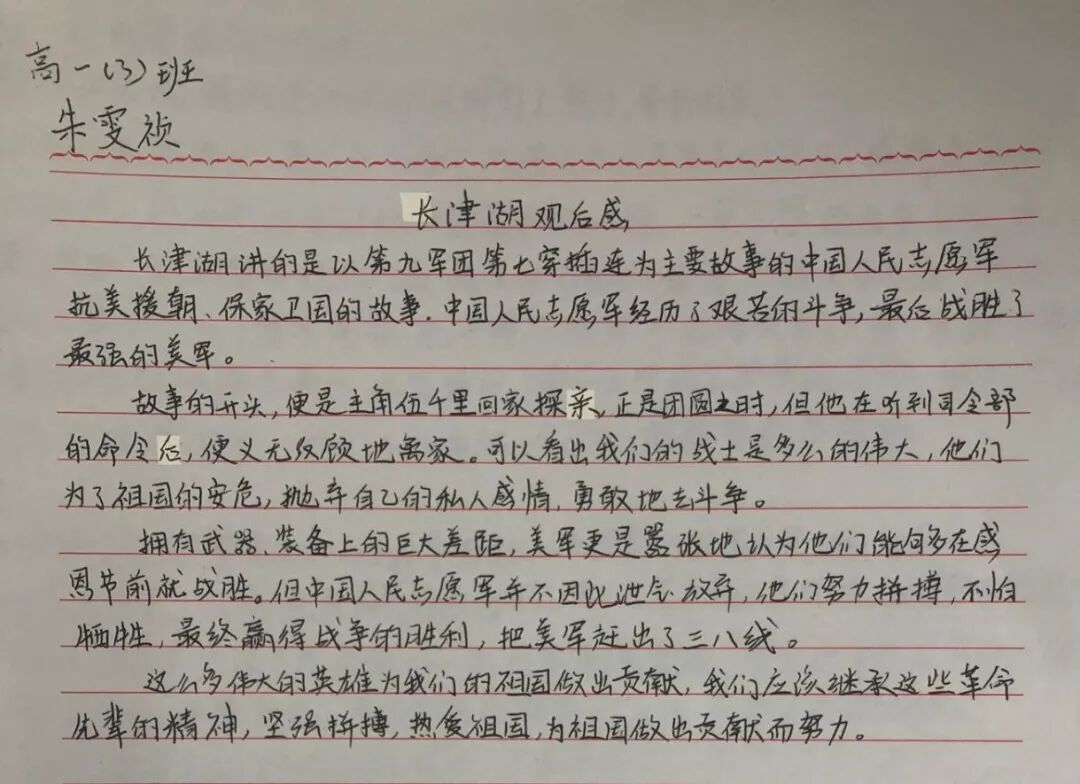 高一(3)班
朱雯祯
长津湖观后感
长津湖讲的是以第九军团第七穿插连为主要故事的中国人民志愿军
抗美援朝、保家卫国的故事.中国人民志愿军经历了艰苦的斗争,最后战胜了
最强的美军。
故事的开头,便是主角伍千里回家探亲,正是团圆之时,但他在听到司令部
的命令后,便义无反顾地离家。可以看出我们的战士是多么的伟大,他们
为了祖国的安危,抛弃自己的私人感情,勇敢地去斗争。
拥有武器、装备上的巨大差距,美军更是嚣张地认为他们能够在感
恩节前就战胜。但中国人民志愿军并不因此泄气放弃,他们努力拼搏,不怕
牺牲,最终赢得战争的胜利,把美军赶出了三八线。
这么多伟大的英雄为我们的祖国做出贡献,我们应该继承这些革命
先辈的精神,坚强拼搏,热爱祖国,为祖国做出贡献而努力。